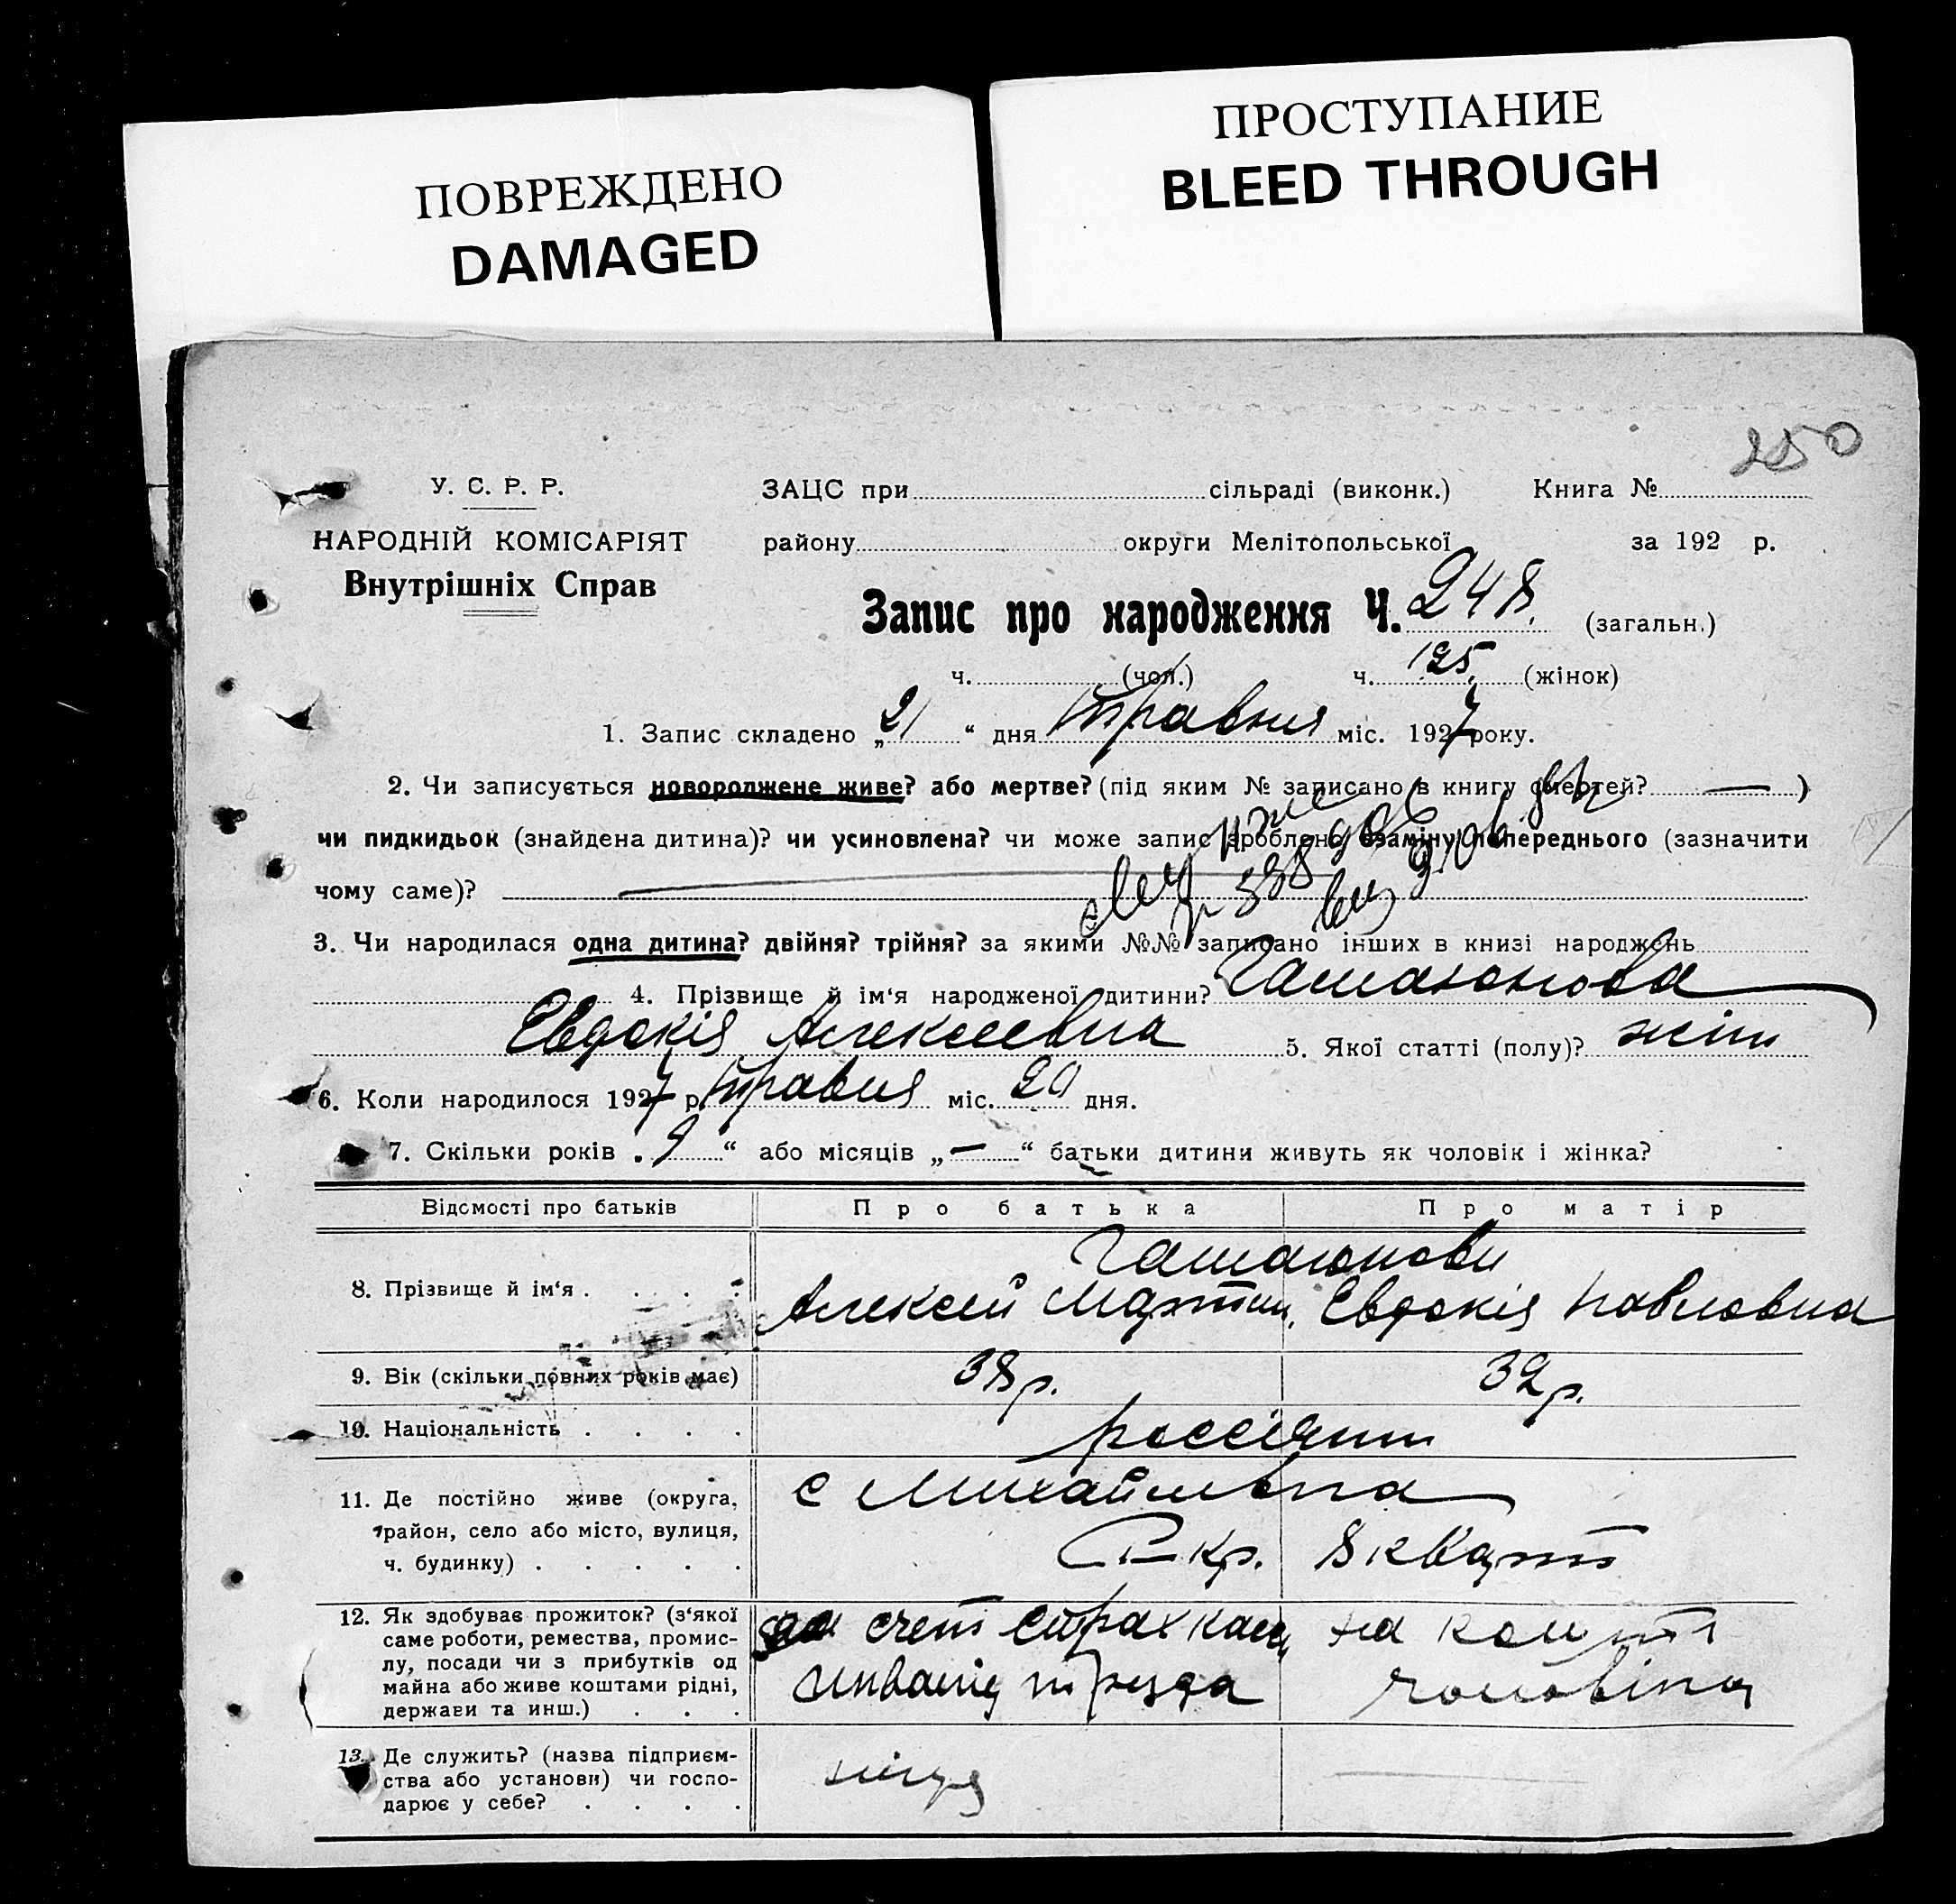 ПОВРЕЖДЕНО
DAMAGED
ПРОСТУПАНИЕ
BLEED THROUGH
250
У. С. Р. Р.
НАРОДНІЙ КОМІСАРІЯТ
Внутрішніх Справ
ЗАЦС при сільраді (виконк.) Книга №
району округи Мелітопольської за 192 р.
Запис про народження Ч. 248. (загальн.)
ч. (чол.) ч. 125. (жінок)
1. Запис складено „21“ дня травня міс. 1927 року.
2. Чи записується новороджене живе? або мертве? (під яким № записано в книгу смертей? — )
чи пидкидьок (знайдена дитина)? чи усиновлена? чи може запис зроблено взаміну попереднього (зазначити
чому саме)?
3. Чи народилася одна дитина? двійня? трійня? за якими №№ записано інших в книзі народжень
4. Прізвище й ім‘я народженої дитини?
Евдокія Алексеевна 5. Якої статті (полу)? жін
6. Коли народилося 1927 р. травня міс. 20 дня.
7. Скільки років „9“ або місяців „—“ батьки дитини живуть як чоловік і жінка?
Відомості про батьків Про батька Про матір
8. Прізвище й ім‘я . . . .
Алексей Мартин. Евдокія Павловна
9. Вік (скільки повних років має) 38 р. 32 р.
10. Національність . . . . россіяни
11. Де постійно живе (округа,
район, село або місто, вулиця,
ч. будинку) . . . . .
с Михайлівка
кр. 8 кварт
12. Як здобуває прожиток? (з‘якої
саме роботи, ремества, промис-
лу, посади чи з прибутків од
майна або живе коштами рідні,
держави та инш.) . . .
счет страх каси на кошти
инвалид труда чоловіка
13. Де служить? (назва підприєм-
ства або установи) чи госпо-
дарює у себе? . . . .
нігде